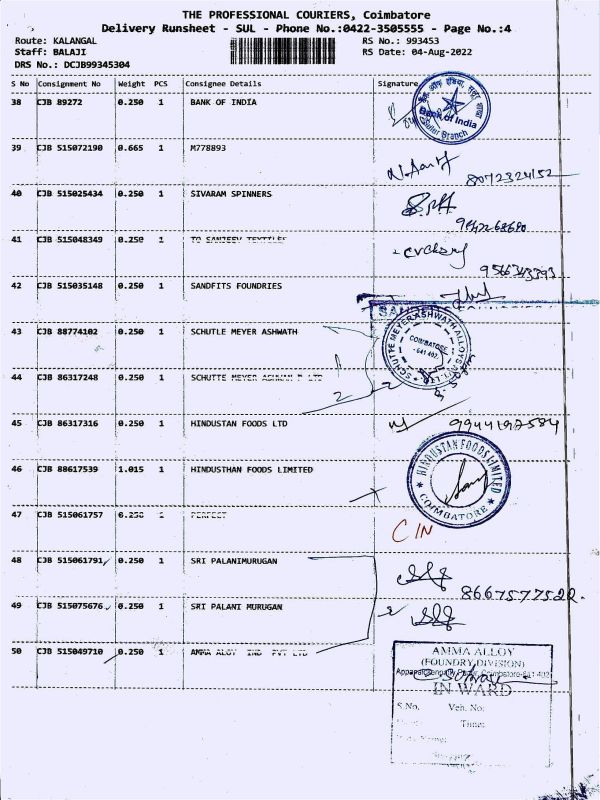 THE PROFESSIONAL COURIERS, Coimbatore
Delivery Runsheet - SUL - Phone No.:0422-3505555 - Page No.:4
Route: KALANGAL RS No.: 993453
Staff: BALAJI RS Date: 04-Aug-2022
DRS No.: DCJB99345304
S No Consignment No Weight PCS Consignee Details Signature
38 CJB 89272 0.250 1 BANK OF INDIA
Bank of India
Sulur Branch
39 CJB 515072190 0.665 1 M778893
8072324152
40 CJB 515025434 0.250 1 SIVARAM SPINNERS
41 CJB 515048349 0.250 1 TO SANJEEV TEXTILES
9566343393
42 CJB 515035148 0.250 1 SANDFITS FOUNDRIES
43 CJB 88774102 0.250 1 SCHUTLE MEYER ASHWATH
SCHUTTE MEYER ASHWATH ALLOYS PVT. LTD.
COIMBATORE
- 641 402.
44 CJB 86317248 0.250 1 SCHUTTE MEYER ASHWAH P LTD
45 CJB 86317316 0.250 1 HINDUSTAN FOODS LTD
9944192584
46 CJB 88617539 1.015 1 HINDUSTHAN FOODS LIMITED
HINDUSTAN FOODS LIMITED
COIMBATORE
47 CJB 515061757 0.250 1 PERFECT
C IN
48 CJB 515061791 0.250 1 SRI PALANIMURUGAN
8667577522.
49 CJB 515075676 0.250 1 SRI PALANI MURUGAN
50 CJB 515049710 0.250 1 AMMA ALOY IND PVT LTD
AMMA ALLOY
(FOUNDRY DIVISION)
Coimbatore-641 402
IN WARD
S.No. Veh. No:
Time: